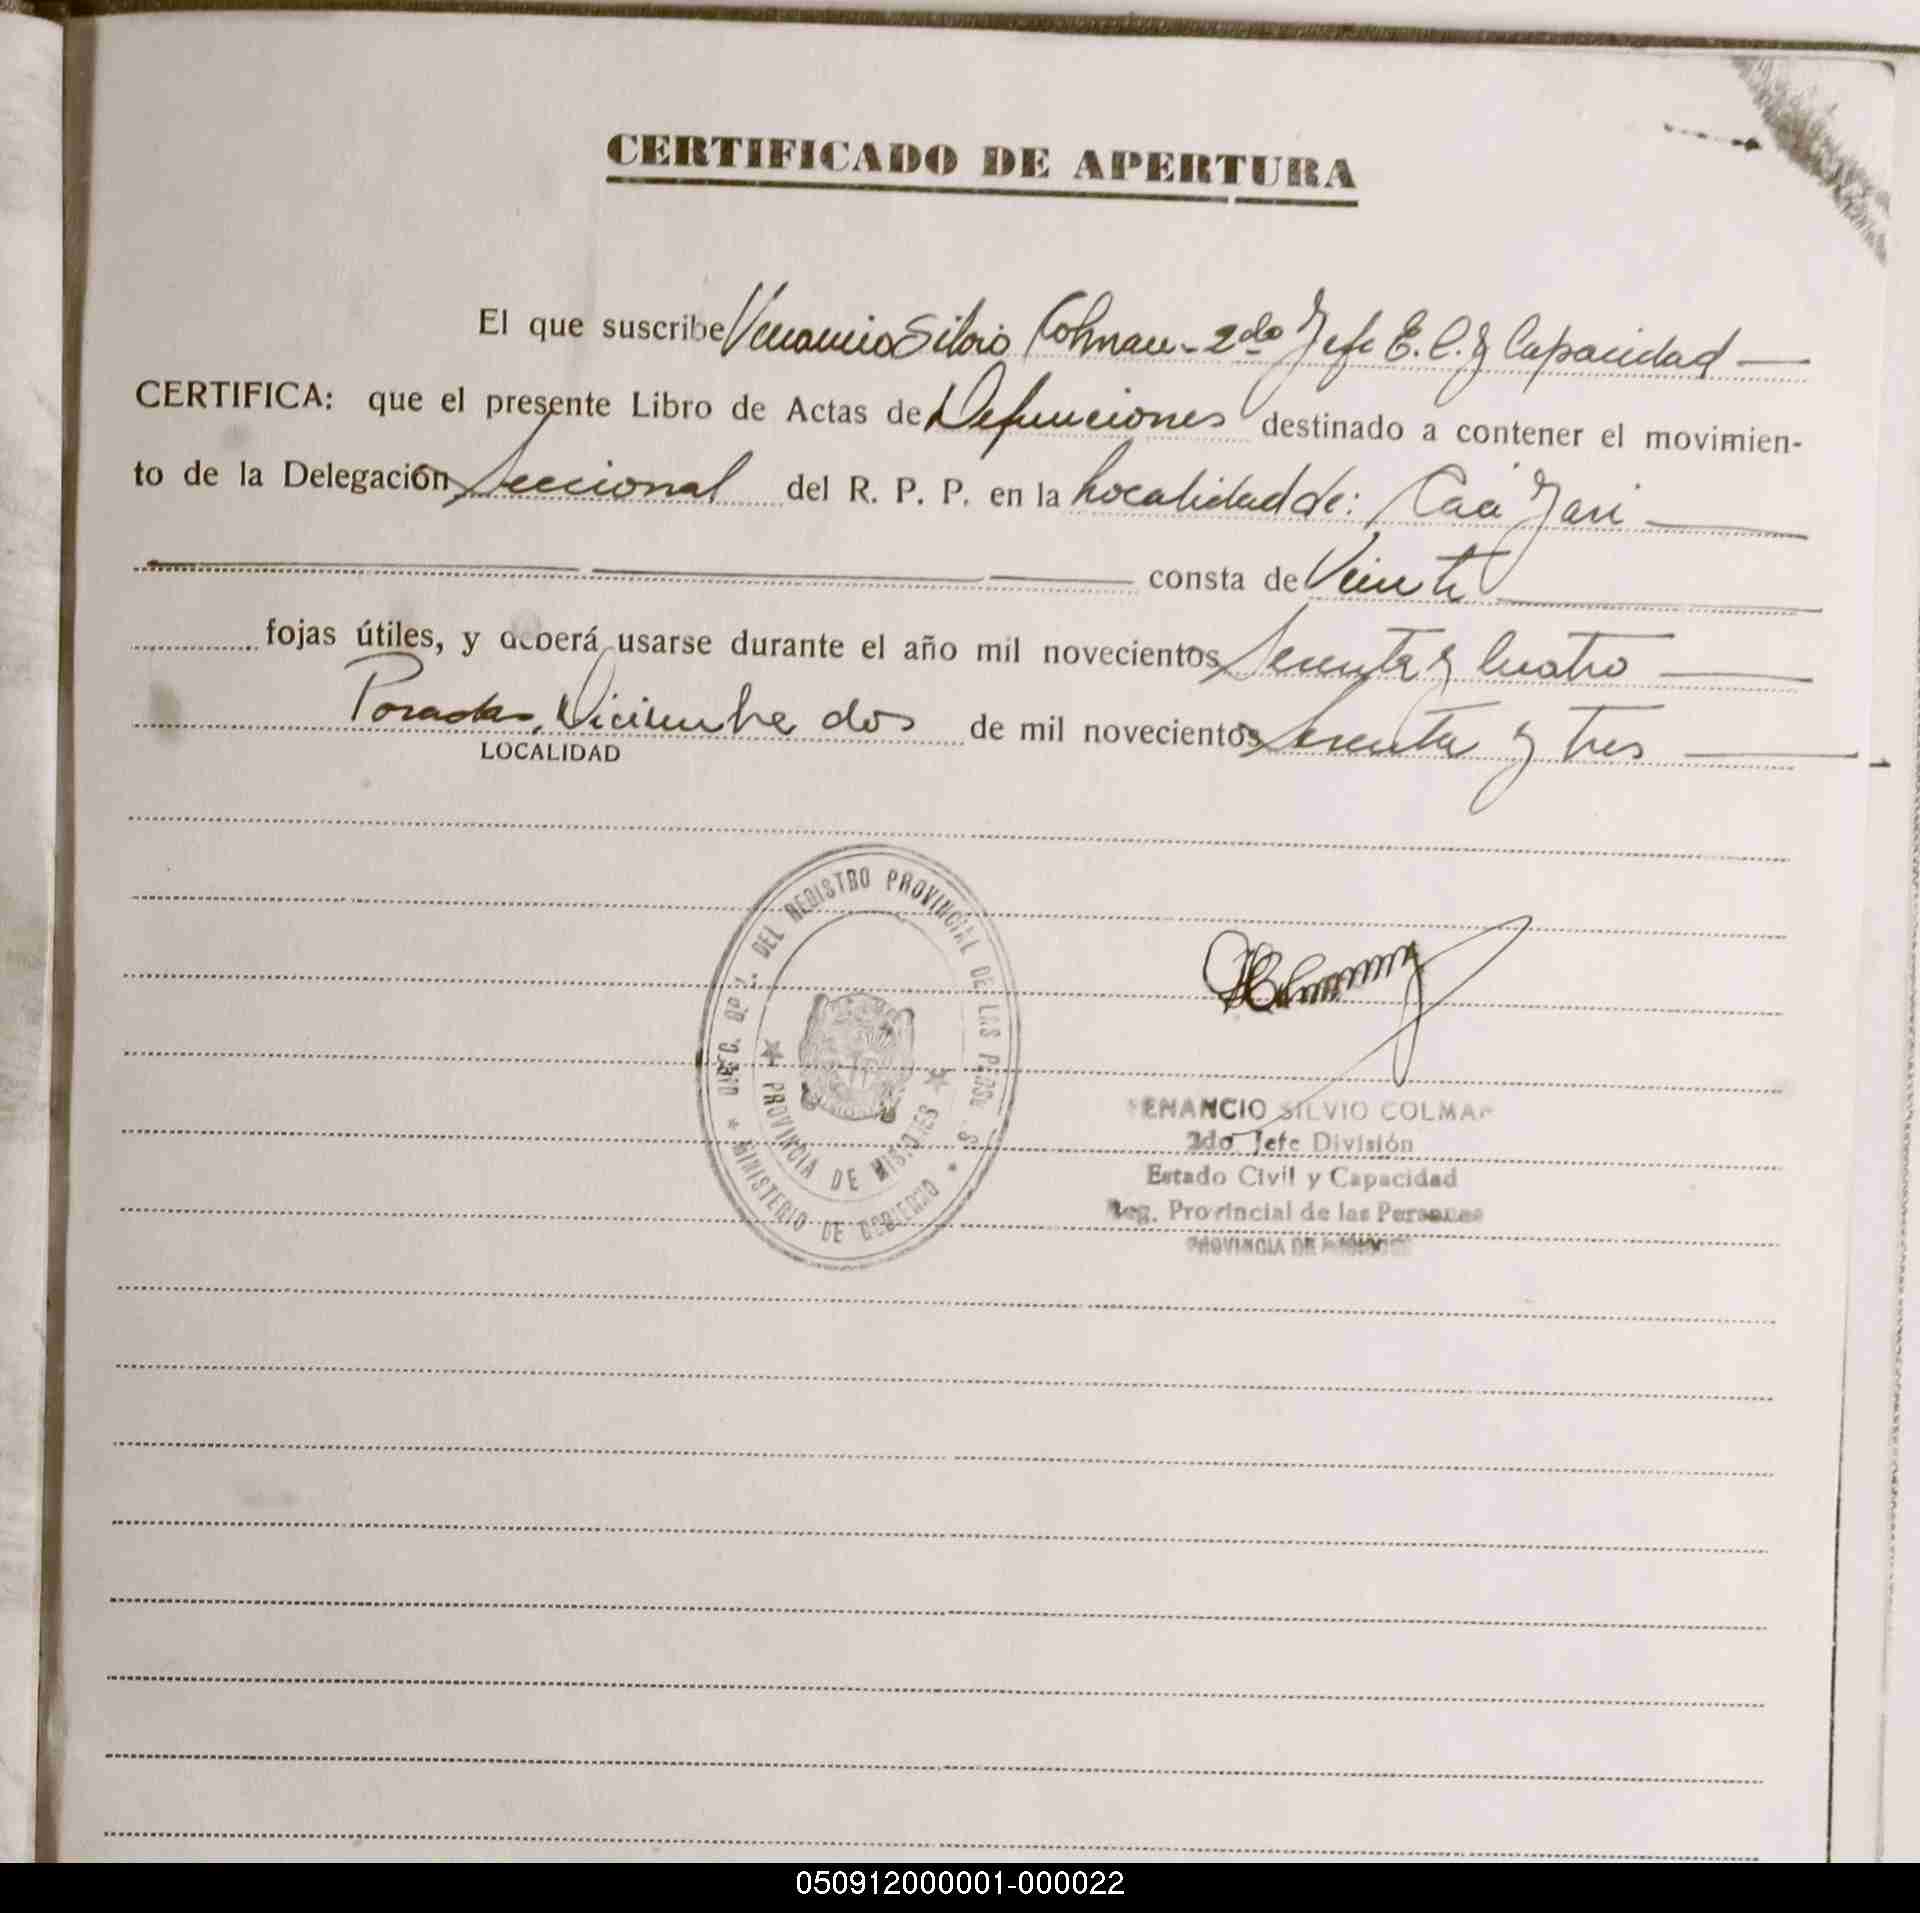 CERTIFICADO DE APERTURA
El que suscribe Venancio Silvio Colman - 2do Jefe E. C. y Capacidad
CERTIFICA: que el presente Libro de Actas de Defunciones destinado a contener el movimien-
to de la Delegación Seccional del R. P. P. en la Localidad de: Caá Yarí
consta de Veinte
fojas útiles, y deberá usarse durante el año mil novecientos Setenta y Cuatro
Posadas, Diciembre dos de mil novecientos Setenta y tres
LOCALIDAD
DEL REGISTRO PROVINCIAL DE LAS PERSONAS
* MINISTERIO DE GOBIERNO *
PROVINCIA DE MISIONES
VENANCIO SILVIO COLMAN
2do. Jefe División
Estado Civil y Capacidad
Reg. Provincial de las Personas
PROVINCIA DE MISIONES
050912000001-000022